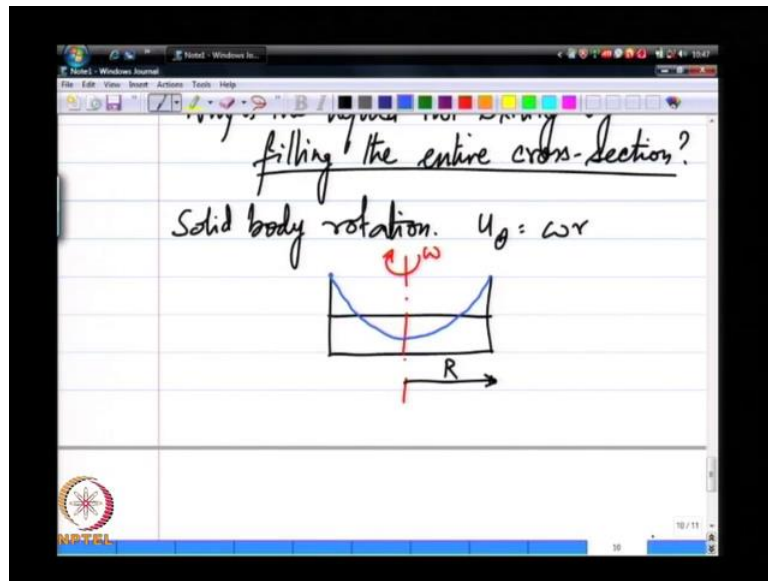 Note1 - Windows Jo...
10:47
Note1 - Windows Journal
File Edit View Insert Actions Tools Help
filling the entire cross-section?
Solid body rotation. uθ = ωr
ω
R
10 / 11
10
NPTEL